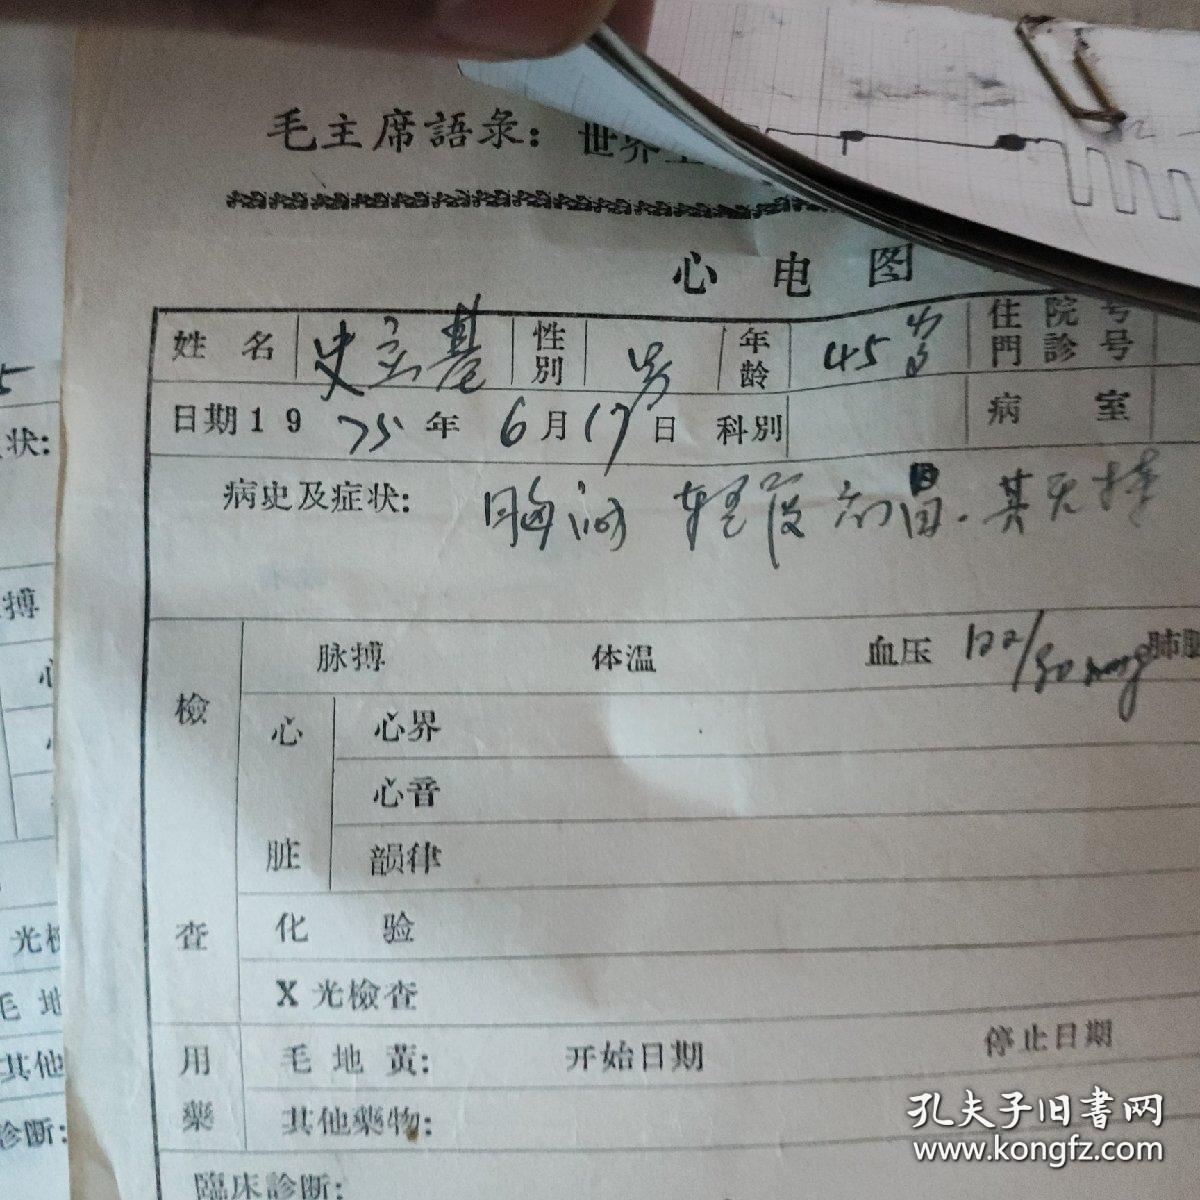 毛主席語彔：世界
心电图
姓名 史 基 性別 男 年龄 45岁 住院号 門診号
日期19 75 年 6 月 17 日 科別 病室
病史及症状: 胸闷 轻度
檢查 脉搏 体温 血压 122/80 mmHg 肺脏
心脏 心界
心音
韻律
化验
X光檢查
用藥 毛地黄: 开始日期 停止日期
其他藥物:
臨床診断:
5
状:
搏
光檢
毛地
其他
診断:
孔夫子旧書网
www.kongfz.com